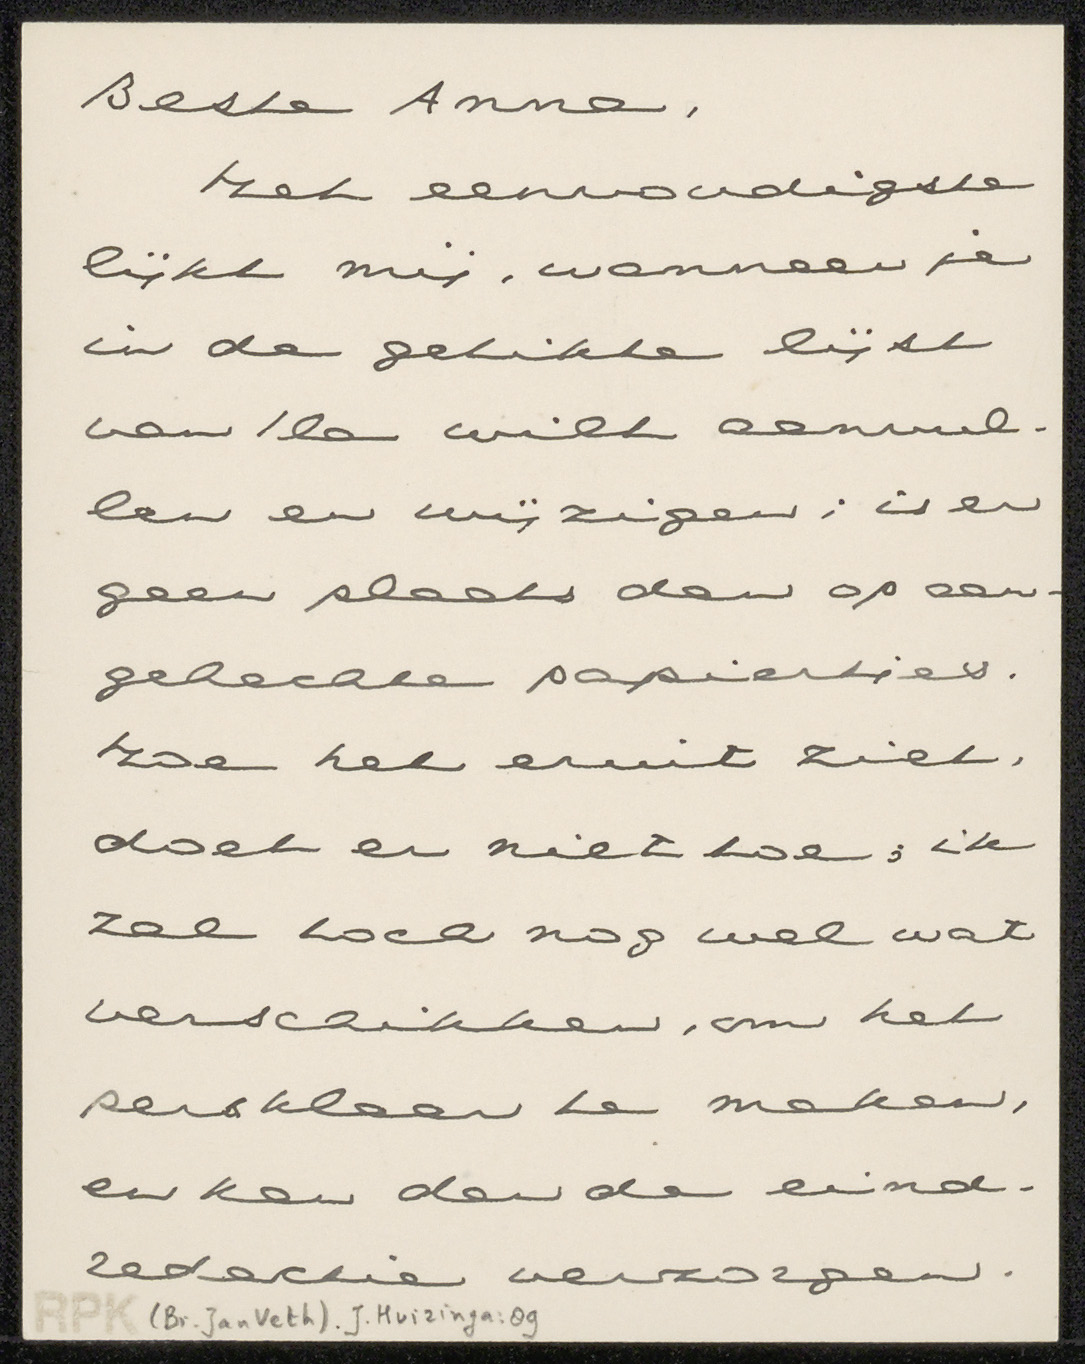 Beste Anna,
Het eenvoudigste
lijkt mij, wanneer je
in de getikte lijst
van Ila wilt aanvul-
len en wijzigen; is er
geen plaats dan op aan-
gehechte papiertjes.
Hoe het eruit ziet,
doet er niet toe; ik
zal toch nog wel wat
verschikken, om het
persklaar te maken,
en kan dan de eind-
redactie verzorgen.
RPK (Br. Jan Veth). J. Huizinga: 09